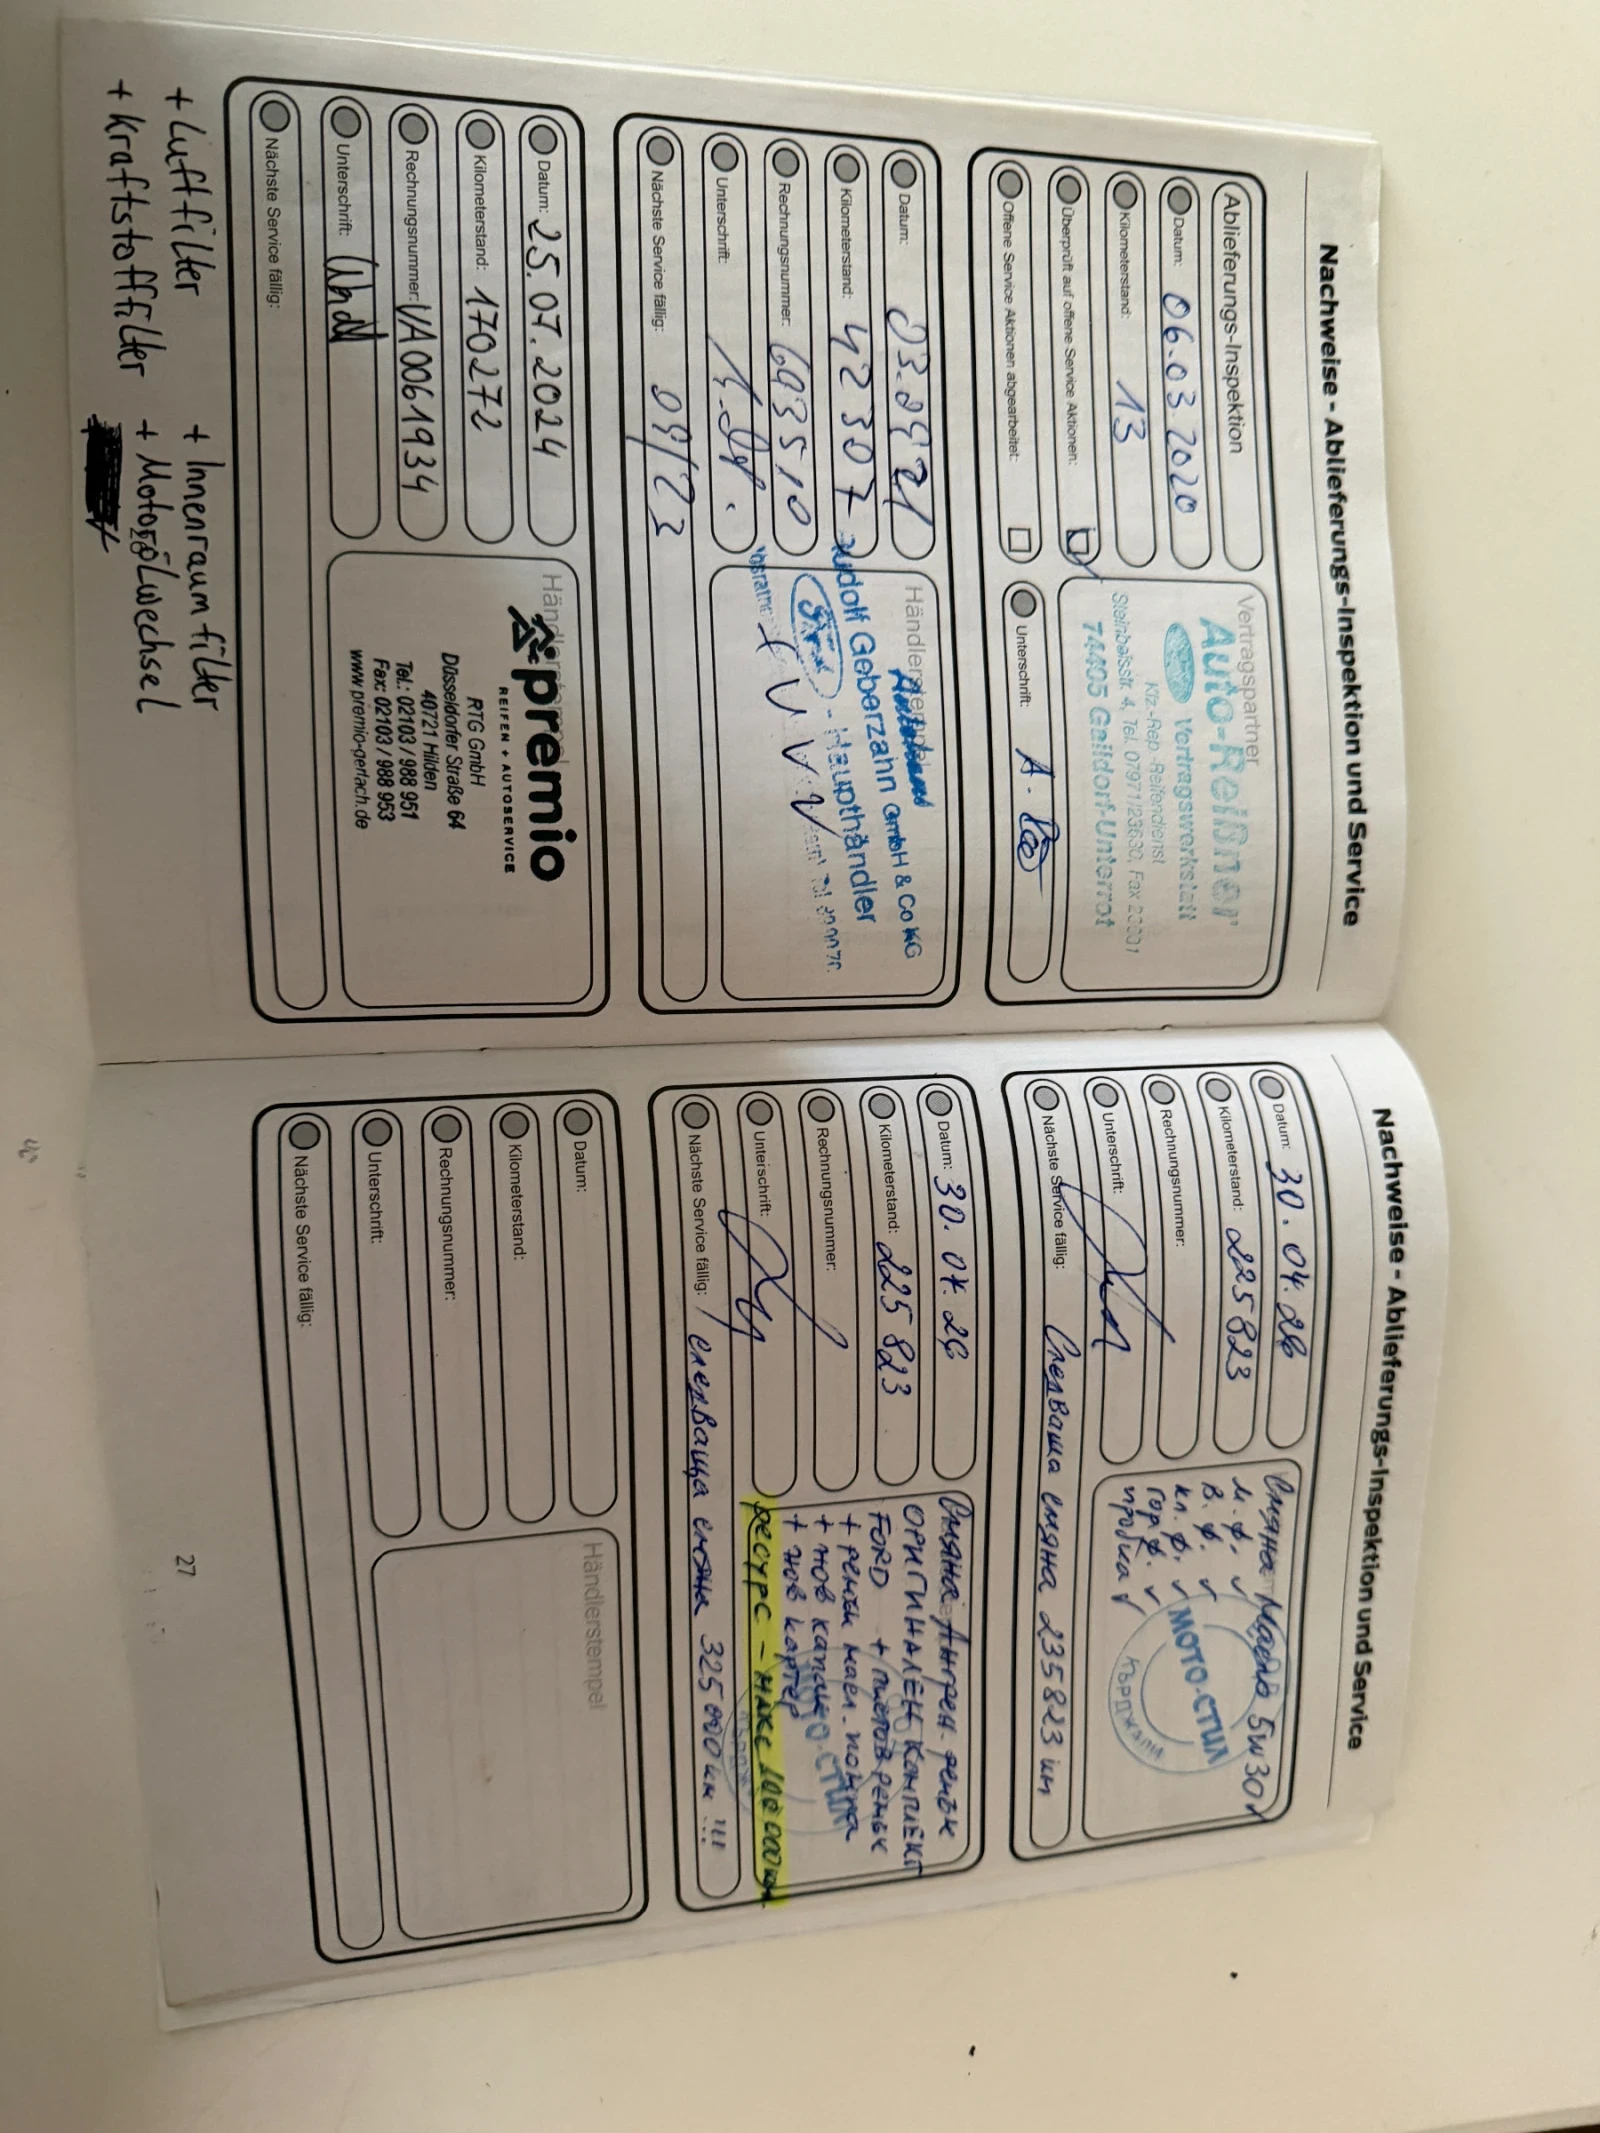 Nachweise - Ablieferungs-Inspektion und Service
Ablieferungs-Inspektion
Datum: 06.03.2020
Kilometerstand: 13
Überprüft auf offene Service Aktionen:
Offene Service Aktionen abgearbeitet:
Vertragspartner
Auto-Reißner
Vertragswerkstatt
Kfz.-Rep.-Reifendienst
Steinbeisstr. 4, Tel. 07971/23630, Fax
74405 Gaildorf-Unterrot
Unterschrift:
Datum: 03.09.21
Kilometerstand: 42307
Rechnungsnummer: 693510
Unterschrift:
Nächste Service fällig: 09/23
Händlerstempel
Rudolf Geberzahn GmbH & Co KG
- Haupthändler
Datum: 25.07.2024
Kilometerstand: 170272
Rechnungsnummer: VA0061934
Unterschrift:
Nächste Service fällig:
premio
REIFEN + AUTOSERVICE
RTG GmbH
Düsseldorfer Straße 64
40721 Hilden
Tel.: 02103 / 988 951
Fax: 02103 / 988 953
www.premio-gerlach.de
+ Luftfilter + Innenraumfilter
+ Kraftstofffilter + Motorölwechsel
Nachweise - Ablieferungs-Inspektion und Service
Datum: 30.04.26
Kilometerstand: 225823
Rechnungsnummer:
Unterschrift:
Nächste Service fällig: Следваща смяна 235823 км
Смяна Масло 5w30
м.ф. ✓
в.ф. ✓
кп.ф. ✓
гор.ф. ✓
пробка ✓
МОТО-СТИЛ
КЪРДЖАЛИ
Datum: 30.04.26
Kilometerstand: 225823
Rechnungsnummer:
Unterschrift:
Nächste Service fällig: следваща смяна 325 000 км !!!
Смяна Ангрен. ремък
ОРИГИНАЛЕН КОМПЛЕКТ
FORD + пистов ремък
+ ремък масл. помпа
+ нов капаче
+ нов картер
ресурс - макс 100 000 км
Datum:
Kilometerstand:
Rechnungsnummer:
Unterschrift:
Nächste Service fällig:
Händlerstempel
27